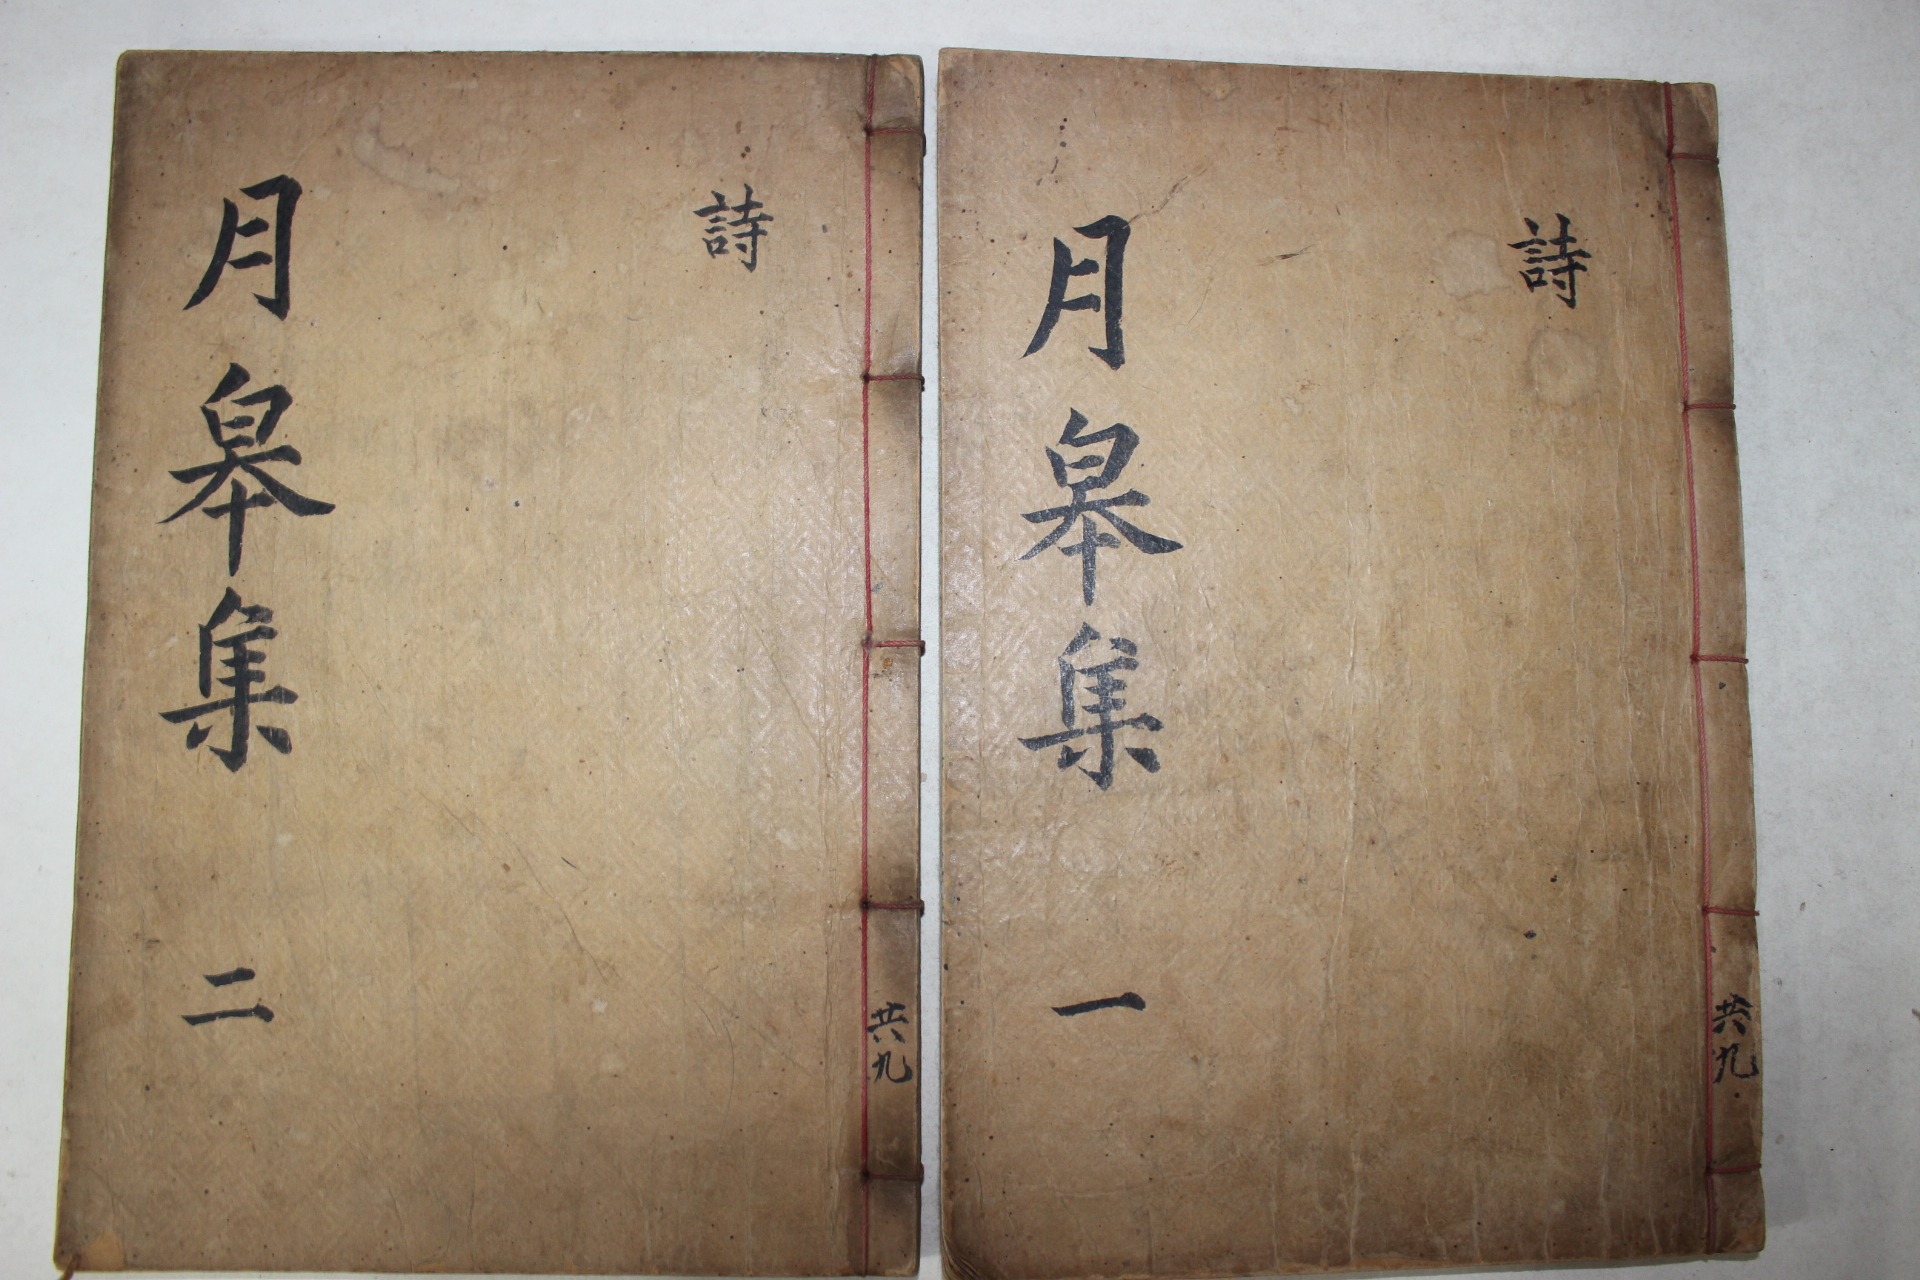 詩
月皐集 一
共九
詩
月皐集 二
共九